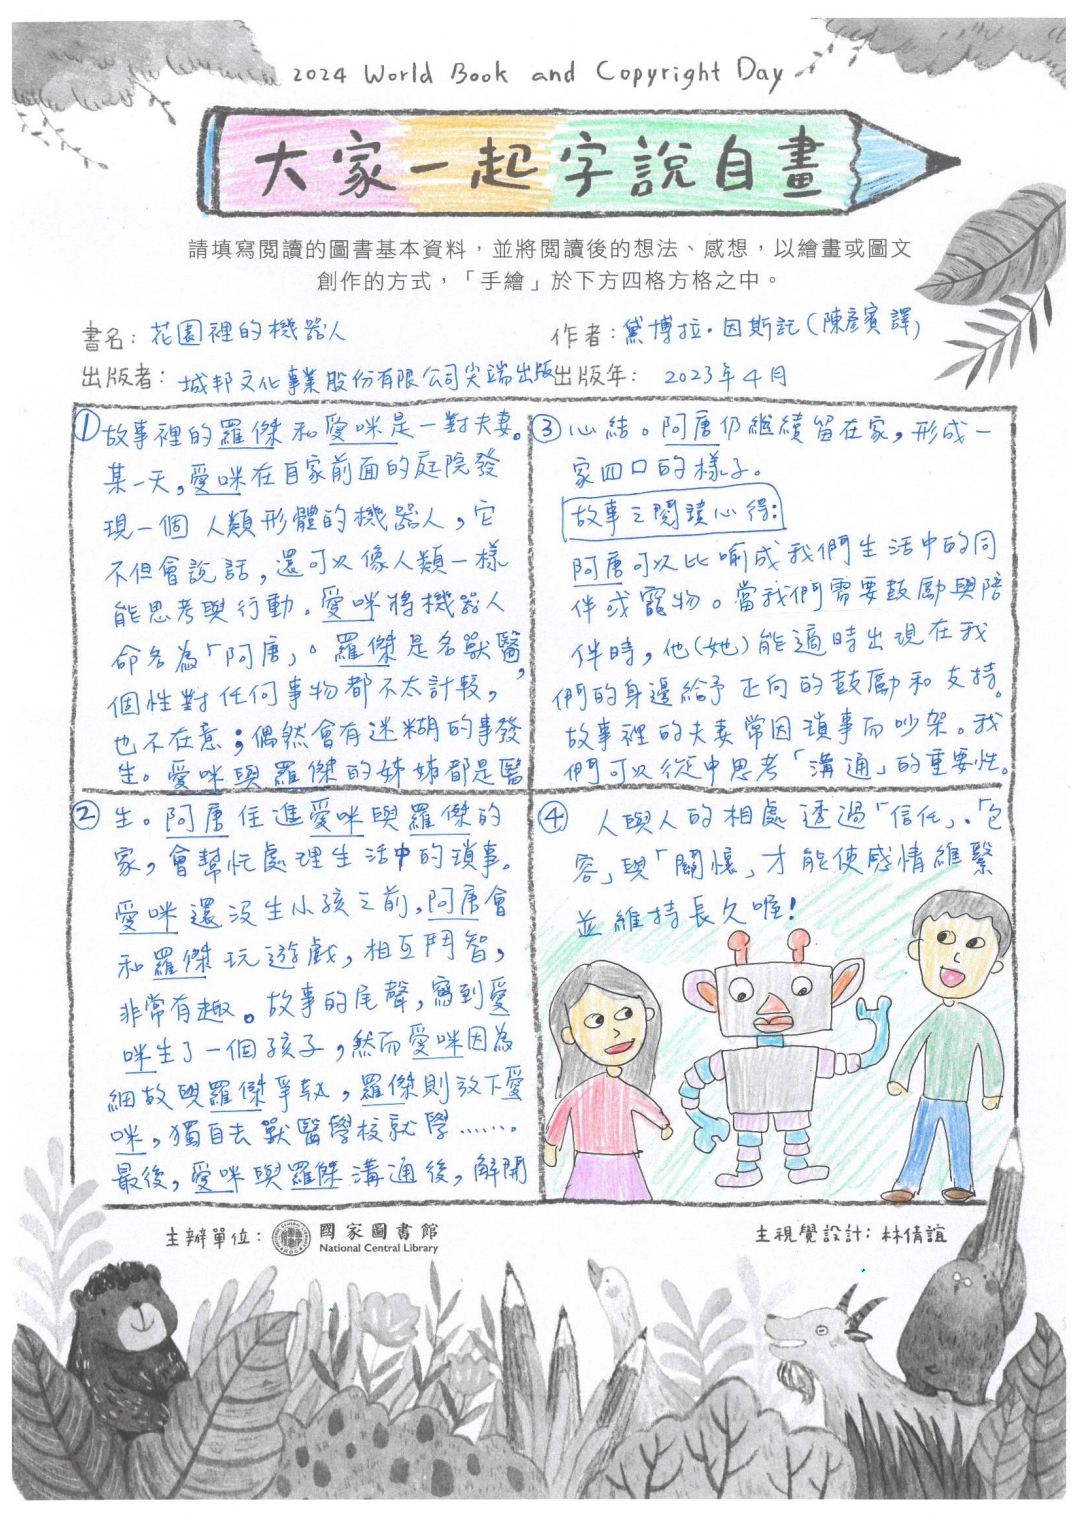 2024 World Book and Copyright Day
大家一起字說自畫
請填寫閱讀的圖書基本資料，並將閱讀後的想法、感想，以繪畫或圖文
創作的方式，「手繪」於下方四格方格之中。
書名：花園裡的機器人
作者：黛博拉·因斯託(陳彥賓 譯)
出版者：城邦文化事業股份有限公司尖端出版
出版年：2023年4月
①故事裡的羅傑和愛咪是一對夫妻。
某一天，愛咪在自家前面的庭院發
現一個人類形體的機器人，它
不但會說話，還可以像人類一樣
能思考與行動。愛咪將機器人
命名為「阿唐」。羅傑是名獸醫，
個性對任何事物都不太計較，
也不在意；偶然會有迷糊的事發
生。愛咪與羅傑的姊姊都是醫
②生。阿唐住進愛咪與羅傑的
家，會幫忙處理生活中的瑣事。
愛咪還沒生小孩之前，阿唐會
和羅傑玩遊戲，相互鬥智，
非常有趣。故事的尾聲，寫到愛
咪生了一個孩子，然而愛咪因為
細故與羅傑爭執，羅傑則放下愛
咪，獨自去獸醫學校就學……。
最後，愛咪與羅傑溝通後，解開
③心結。阿唐仍繼續留在家，形成一
家四口的樣子。
故事之閱讀心得：
阿唐可以比喻成我們生活中的同
伴或寵物。當我們需要鼓勵與陪
伴時，他(她)能適時出現在我
們的身邊給予正向的鼓勵和支持。
故事裡的夫妻常因瑣事而吵架。我
們可以從中思考「溝通」的重要性。
④人與人的相處透過「信任」、「包
容」與「關懷」才能使感情維繫
並維持長久喔！
主辦單位：國家圖書館
National Central Library
主視覺設計：林倩誼